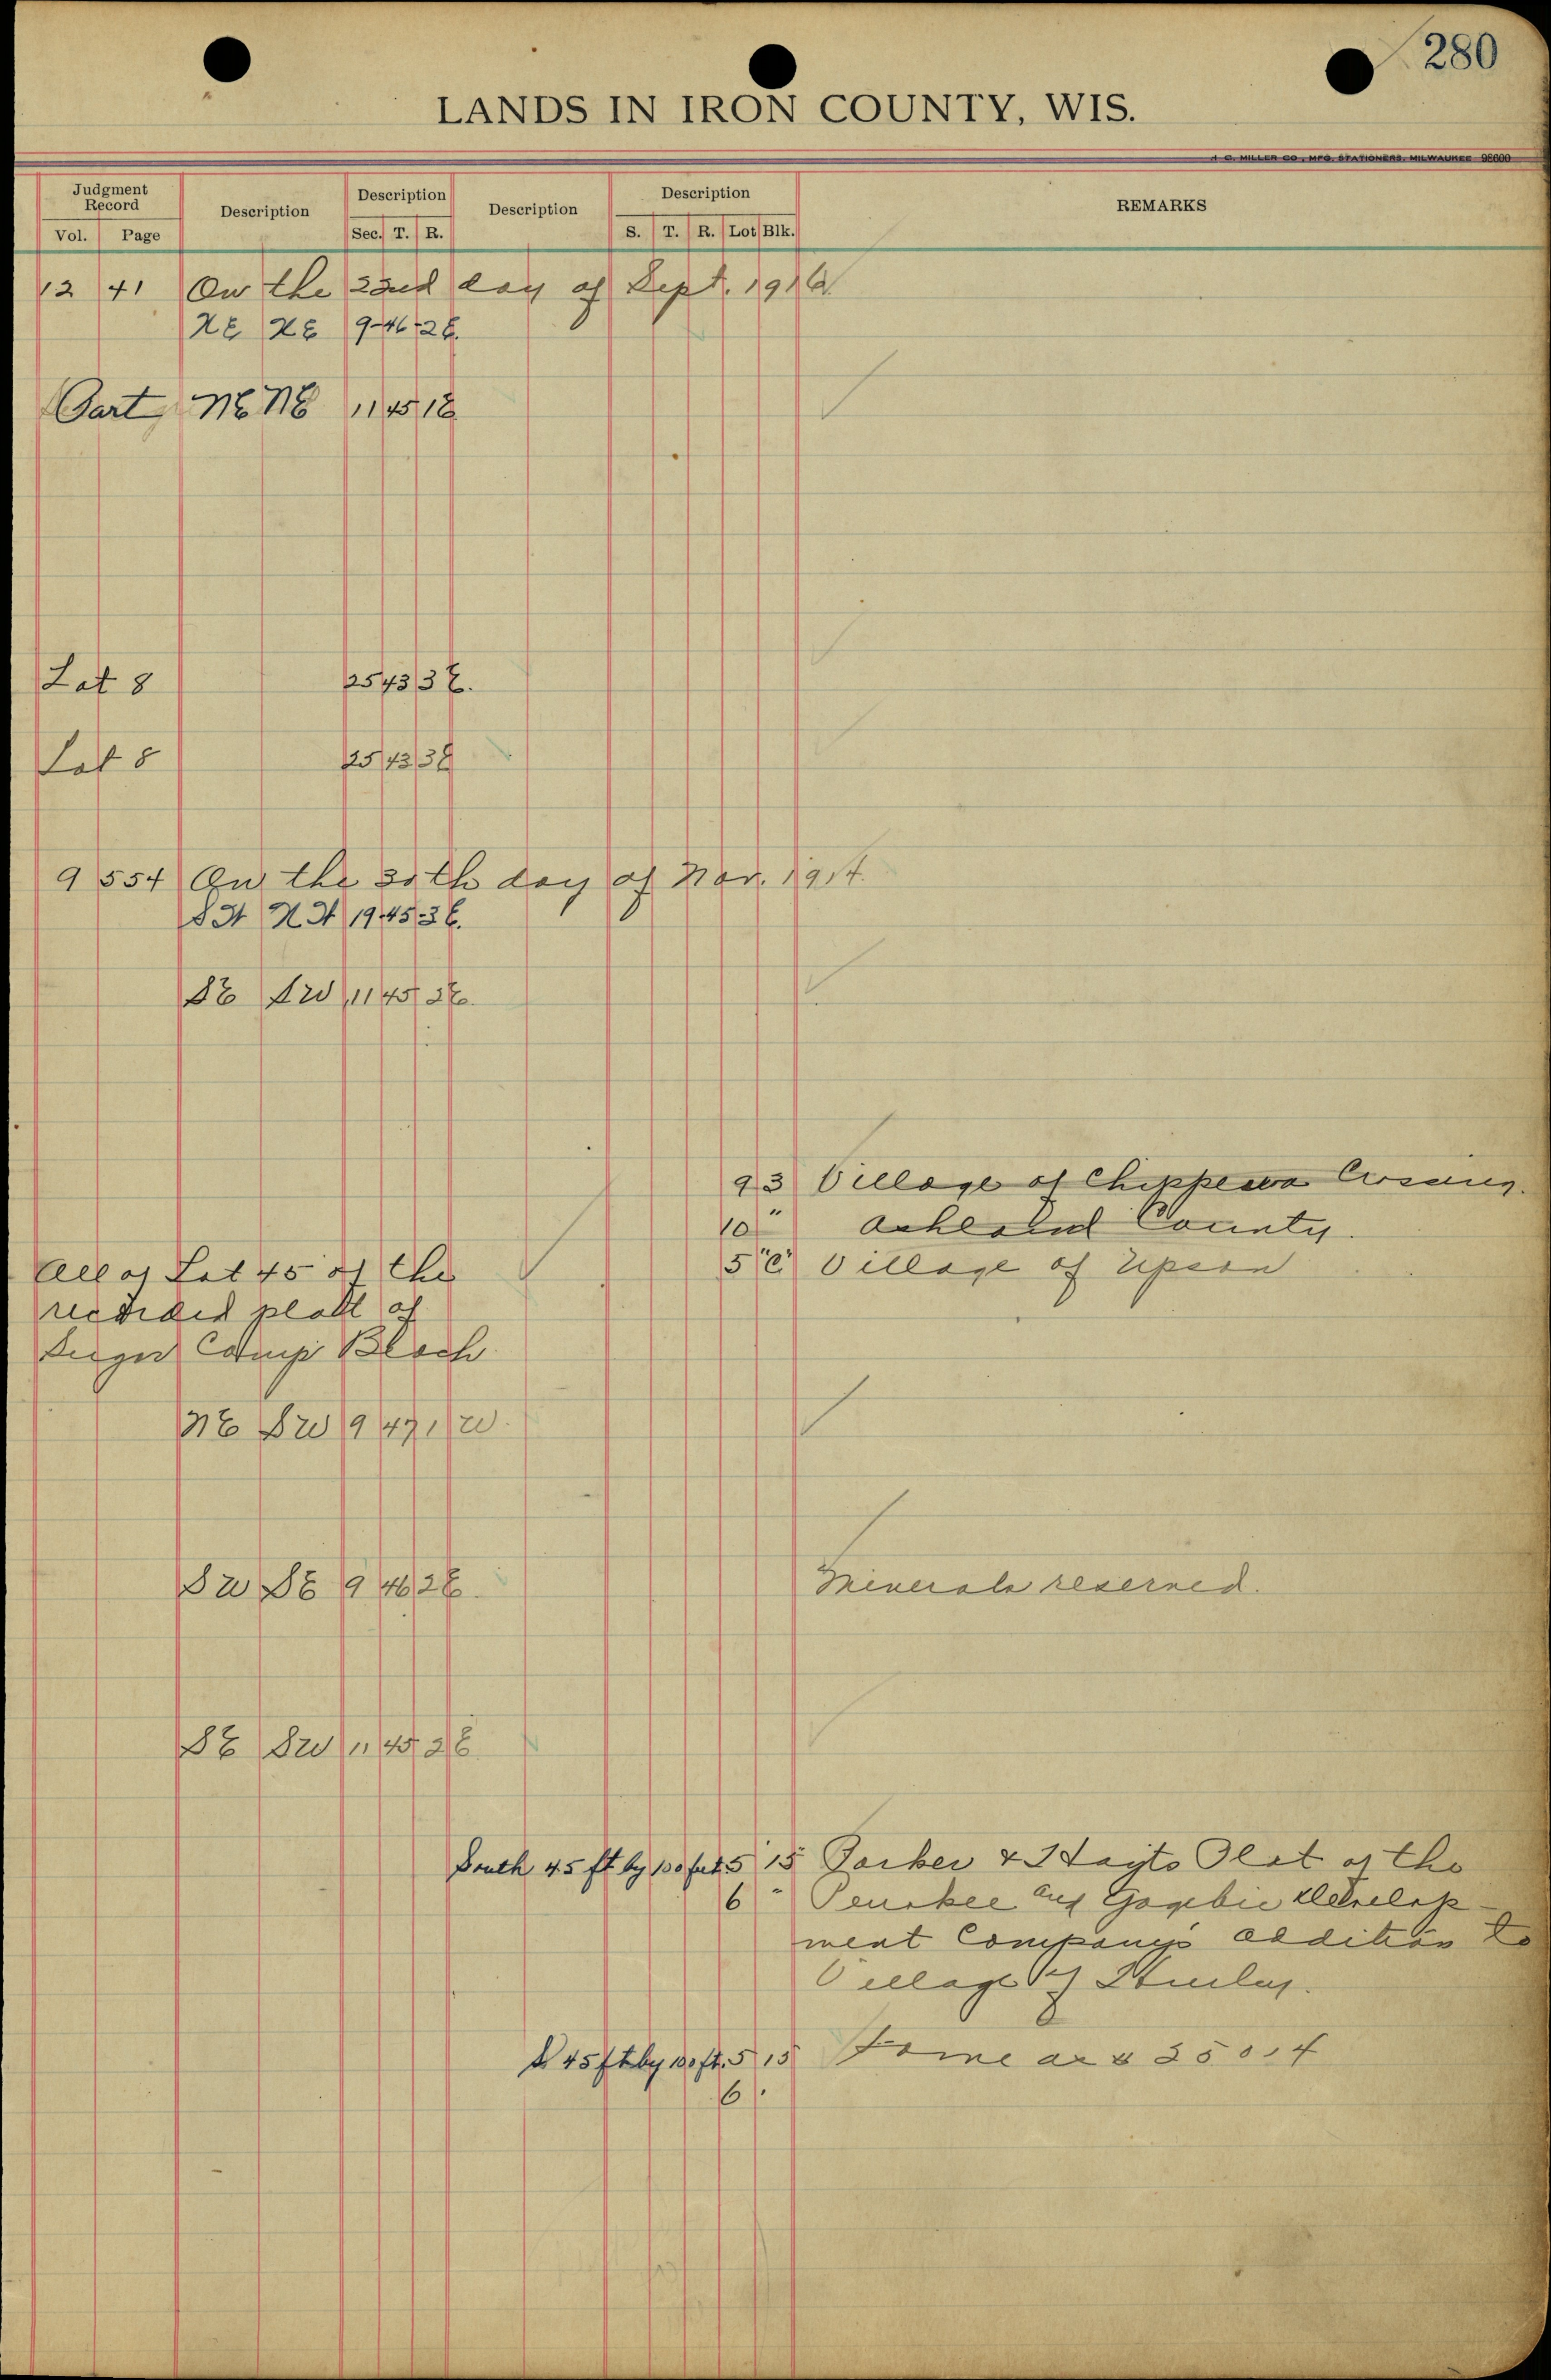 280
LANDS IN IRON COUNTY, WIS.
H. C. MILLER CO., MFG. STATIONERS, MILWAUKEE 98600
Judgment Record Description Description Description Description REMARKS
Vol. Page Sec. T. R. S. T. R. Lot Blk.
12 41 On the 22nd day of Sept. 1916
NE NE 9-46-2E.
Part NE NE 11 45 1E
Lot 8 25 43 3E.
Lot 8 25 43 3E
9 554 On the 30th day of Nov. 1914.
19-45-3E.
SE SW 11 45 2E.
9 3 Village of Chippewa Crossing.
10 " Ashland County.
5 "C" Village of Upson
All of Lot 45 of the
recorded platt of
Sugar Camp Beach
NE SW 9 47 1W.
SW SE 9 46 2E. Minerals reserved.
SE SW 11 45 2E.
South 45 ft by 100 feet 5 15 Parker & Hayts Plat of the
6 " Penokee and Gogebic Develop-
ment Company's addition to
Village of Hurley.
S 45 ft by 100 ft. 5 15 Same as # 25014
6 "